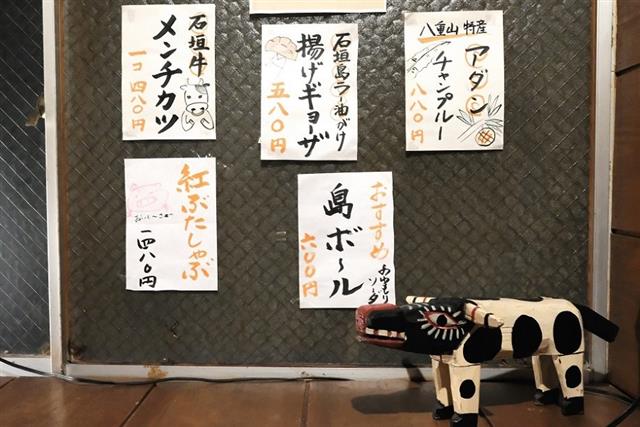 石垣牛
メンチカツ
一コ 四八〇円
石垣島ラー油がけ
揚げギョーザ
五八〇円
八重山 特産
アダン
チャンプルー
八八〇円
紅ぶたしゃぶ
一四八〇円
おすすめ
島ボ〜ル
あわもりソーダ
六〇〇円